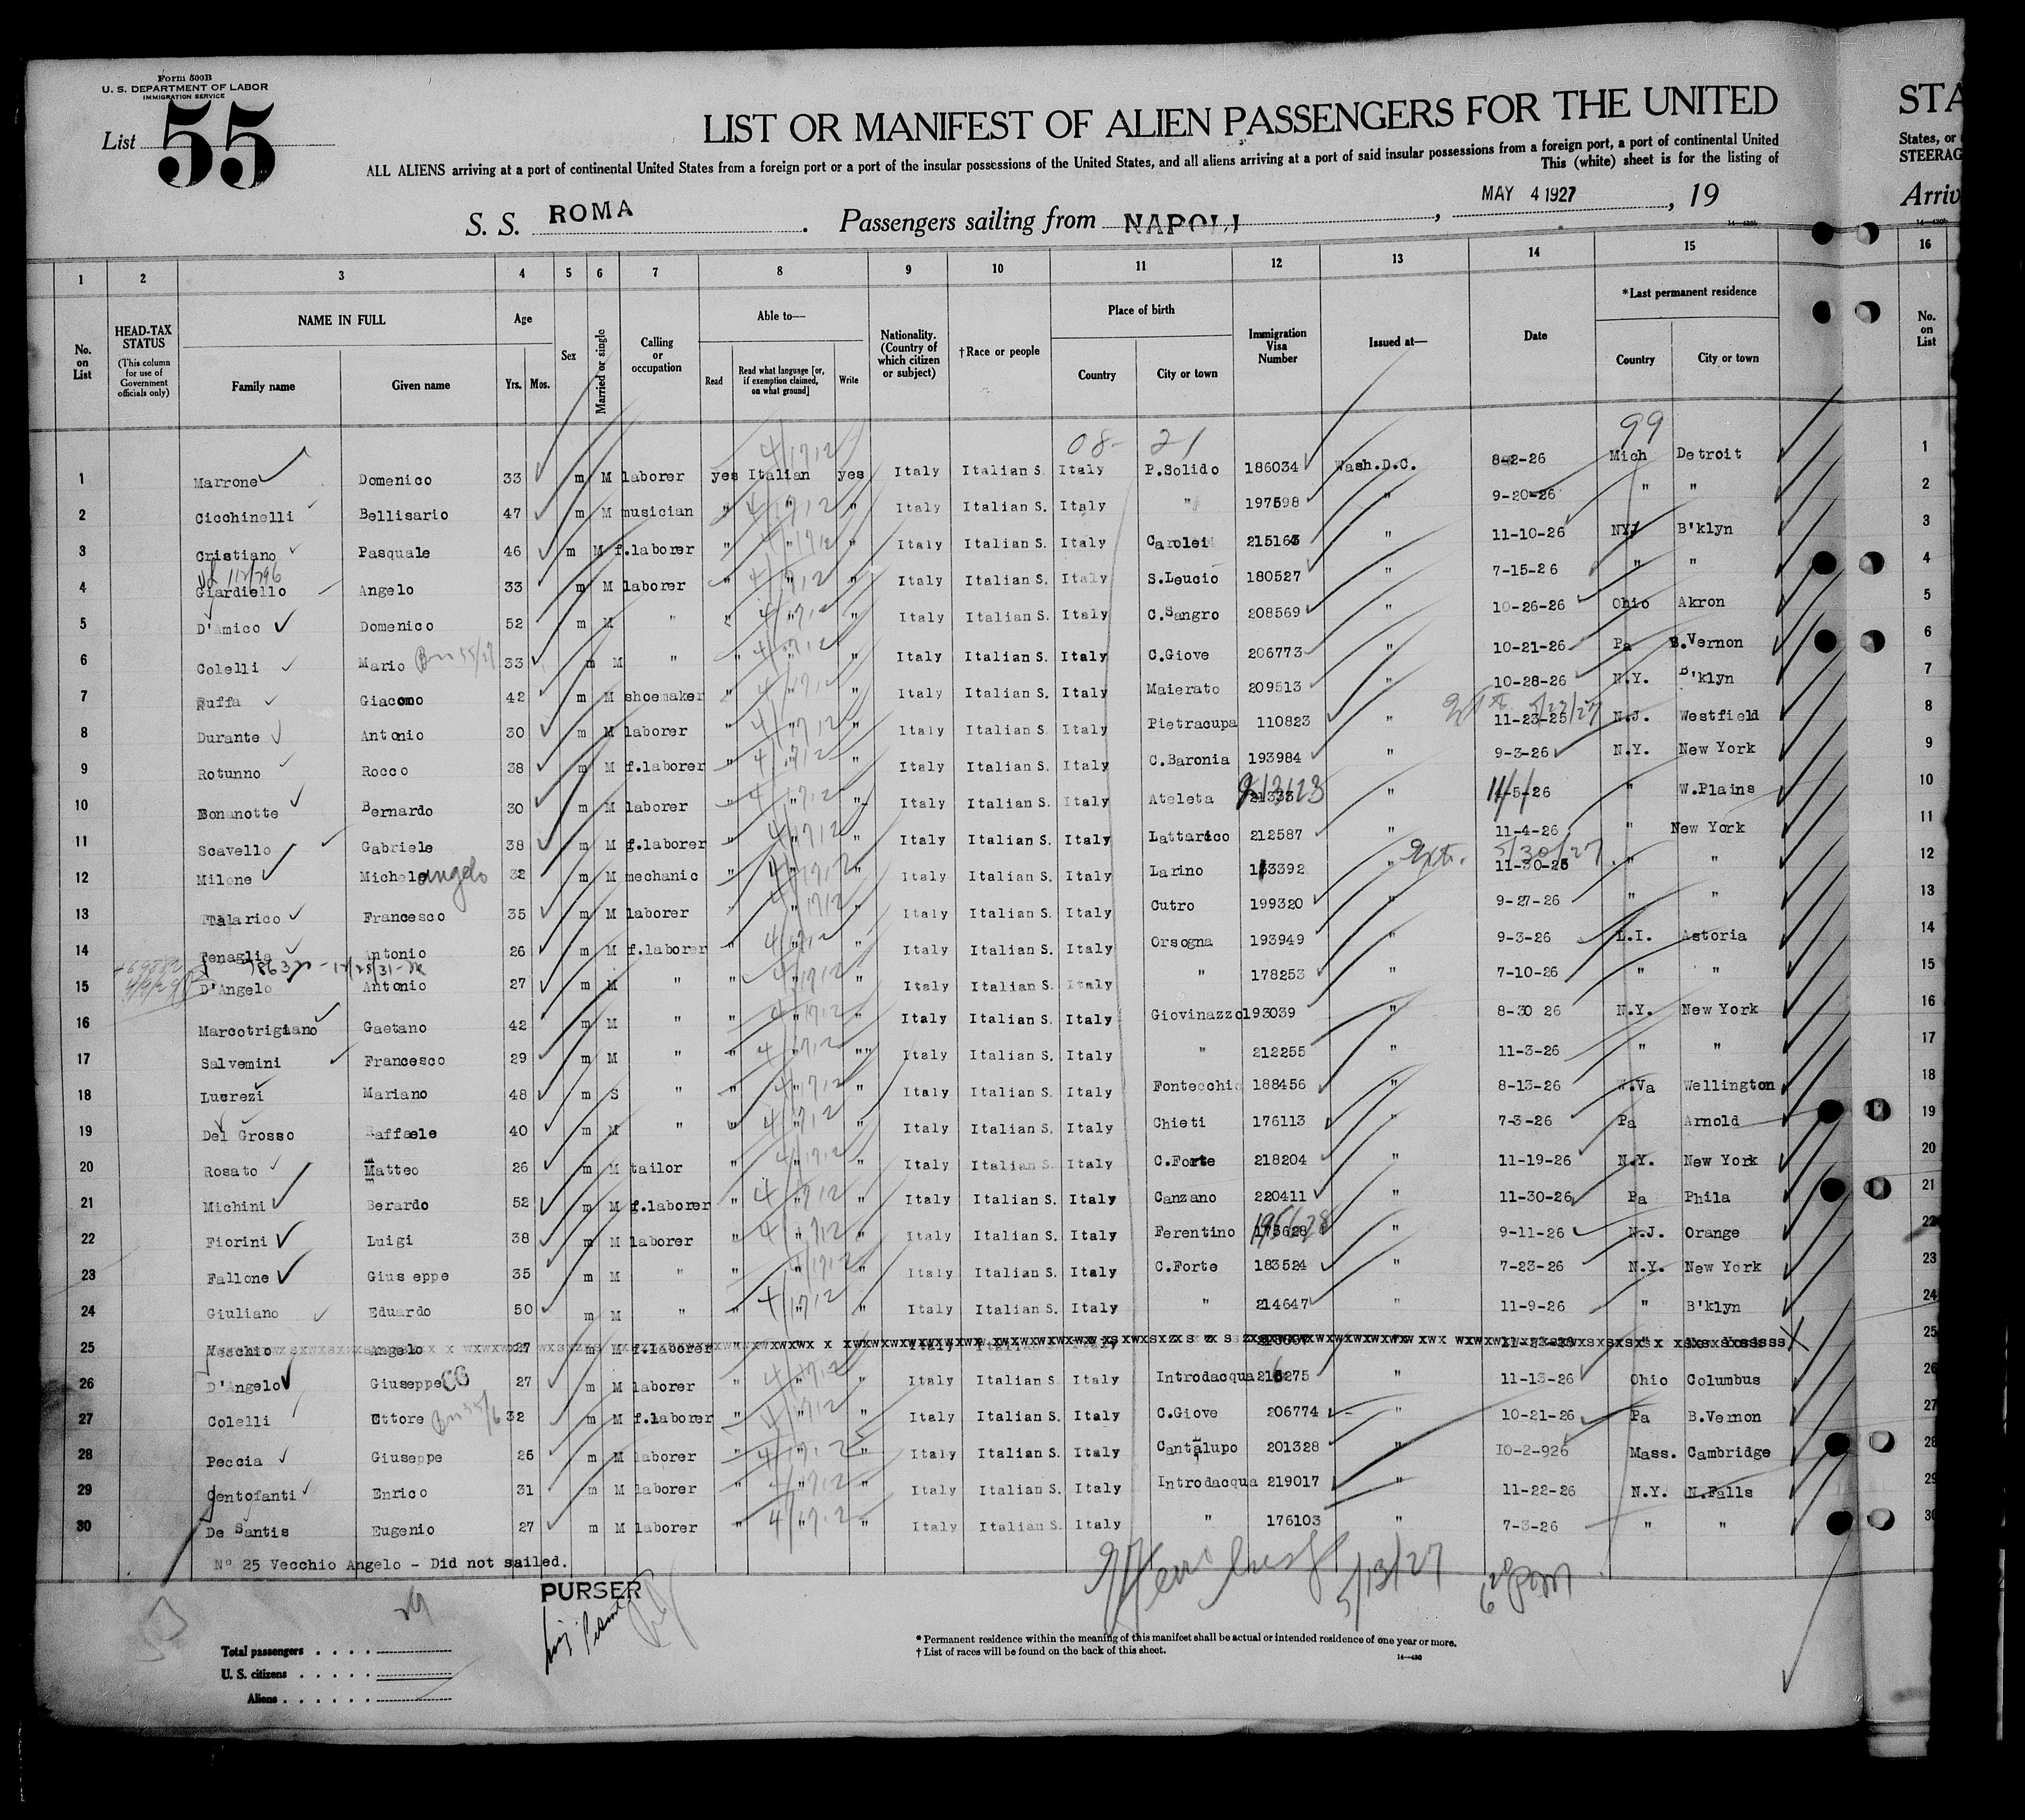 Form 500B
U. S. DEPARTMENT OF LABOR
IMMIGRATION SERVICE
List 55
LIST OR MANIFEST OF ALIEN PASSENGERS FOR THE UNITED
STA
ALL ALIENS arriving at a port of continental United States from a foreign port or a port of the insular possessions of the United States, and all aliens arriving at a port of said insular possessions from a foreign port, a port of continental United
States, or
This (white) sheet is for the listing of
STEERAG
S. S. ROMA . Passengers sailing from NAPOLI , MAY 4 1927 , 19
Arriv
1 2 3 4 5 6 7 8 9 10 11 12 13 14 15 16
No. on List
HEAD-TAX STATUS
(This column for use of Government officials only)
NAME IN FULL
Family name Given name
Age
Yrs. Mos.
Sex
Married or single
Calling or occupation
Able to—
Read
Read what language [or, if exemption claimed, on what ground]
Write
Nationality. (Country of which citizen or subject)
†Race or people
Place of birth
Country City or town
Immigration Visa Number
Issued at—
Date
*Last permanent residence
Country City or town
No. on List
08- 21 99
1 Marrone Domenico 33 m M laborer yes Italian yes Italy Italian S. Italy P.Solido 186034 Wash.D.C. 8-2-26 Mich Detroit 1
2 Cicchinelli Bellisario 47 m M musician " " " Italy Italian S. Italy " 197598 " 9-20-26 " " 2
3 Cristiano Pasquale 46 m M f.laborer " " " Italy Italian S. Italy Carolei 215163 " 11-10-26 NY B'klyn 3
4 Giardiello Angelo 33 m M laborer " " " Italy Italian S. Italy S.Leucio 180527 " 7-15-26 " " 4
5 D'Amico Domenico 52 m M " " " " Italy Italian S. Italy C.Sangro 208569 " 10-26-26 Ohio Akron 5
6 Colelli Mario 33 m M " " " " Italy Italian S. Italy C.Giove 206773 " 10-21-26 Pa B.Vernon 6
7 Ruffa Giacomo 42 m M shoemaker " " " Italy Italian S. Italy Maierato 209513 " 10-28-26 N.Y. B'klyn 7
8 Durante Antonio 30 m M laborer " " " Italy Italian S. Italy Pietracupa 110823 " 11-23-25 N.J. Westfield 8
9 Rotunno Rocco 38 m M f.laborer " " " Italy Italian S. Italy C.Baronia 193984 " 9-3-26 N.Y. New York 9
10 Bonanotte Bernardo 30 m M laborer " " " Italy Italian S. Italy Ateleta 213123 " 11-5-26 " W.Plains 10
11 Scavello Gabriele 38 m M f.laborer " " " Italy Italian S. Italy Lattarico 212587 " 11-4-26 " New York 11
Ext. 5/30/27
12 Milone Michelangelo 32 m M mechanic " " " Italy Italian S. Italy Larino 113392 " 11-30-25 " " 12
13 Talarico Francesco 35 m M laborer " " " Italy Italian S. Italy Cutro 199320 " 9-27-26 " " 13
14 Tenaglia Antonio 26 m M f.laborer " " " Italy Italian S. Italy Orsogna 193949 " 9-3-26 L.I. Astoria 14
15 D'Angelo Antonio 27 m M " " " " Italy Italian S. Italy " 178253 " 7-10-26 " " 15
16 Marcotrigiano Gaetano 42 m M " " " " Italy Italian S. Italy Giovinazzo 193039 " 8-30 26 N.Y. New York 16
17 Salvemini Francesco 29 m M " " " "" Italy Italian S. Italy " 212255 " 11-3-26 " " 17
18 Lucrezi Mariano 48 m S " " " " Italy Italian S. Italy Fontecchio 188456 " 8-13-26 W.Va Wellington 18
19 Del Grosso Raffaele 40 m M " " " " Italy Italian S. Italy Chieti 176113 " 7-3-26 Pa Arnold 19
20 Rosato Matteo 26 m M tailor " " " Italy Italian S. Italy C.Forte 218204 " 11-19-26 N.Y. New York 20
21 Michini Berardo 52 m M f.laborer " " " Italy Italian S. Italy Canzano 220411 " 11-30-26 Pa Phila 21
22 Fiorini Luigi 38 m M laborer " " " Italy Italian S. Italy Ferentino 195628 " 9-11-26 N.J. Orange 22
23 Fallone Giuseppe 35 m M " " " " Italy Italian S. Italy C.Forte 183524 " 7-23-26 N.Y. New York 23
24 Giuliano Eduardo 50 m M " " " " Italy Italian S. Italy " 214647 " 11-9-26 " B'klyn 24
25 Vecchio Angelo 27 m M f.laborer " Italy Italian S. Italy 25
26 D'Angelo Giuseppe 27 m M laborer " " " Italy Italian S. Italy Introdacqua 216275 " 11-13-26 Ohio Columbus 26
27 Colelli Ettore 32 m M f.laborer " " " Italy Italian S. Italy C.Giove 206774 " 10-21-26 Pa B.Vernon 27
28 Peccia Giuseppe 26 m M laborer " " " Italy Italian S. Italy Cantalupo 201328 " 10-2-926 Mass. Cambridge 28
29 Centofanti Enrico 31 m M laborer " " " Italy Italian S. Italy Introdacqua 219017 " 11-22-26 N.Y. N.Falls 29
30 De Santis Eugenio 27 m M laborer " " " Italy Italian S. Italy " 176103 " 7-3-26 " " 30
Nº 25 Vecchio Angelo - Did not sailed.
PURSER
5/13/27
29
Total passengers
U. S. citizens
Aliens
* Permanent residence within the meaning of this manifest shall be actual or intended residence of one year or more.
† List of races will be found on the back of this sheet.
14—430